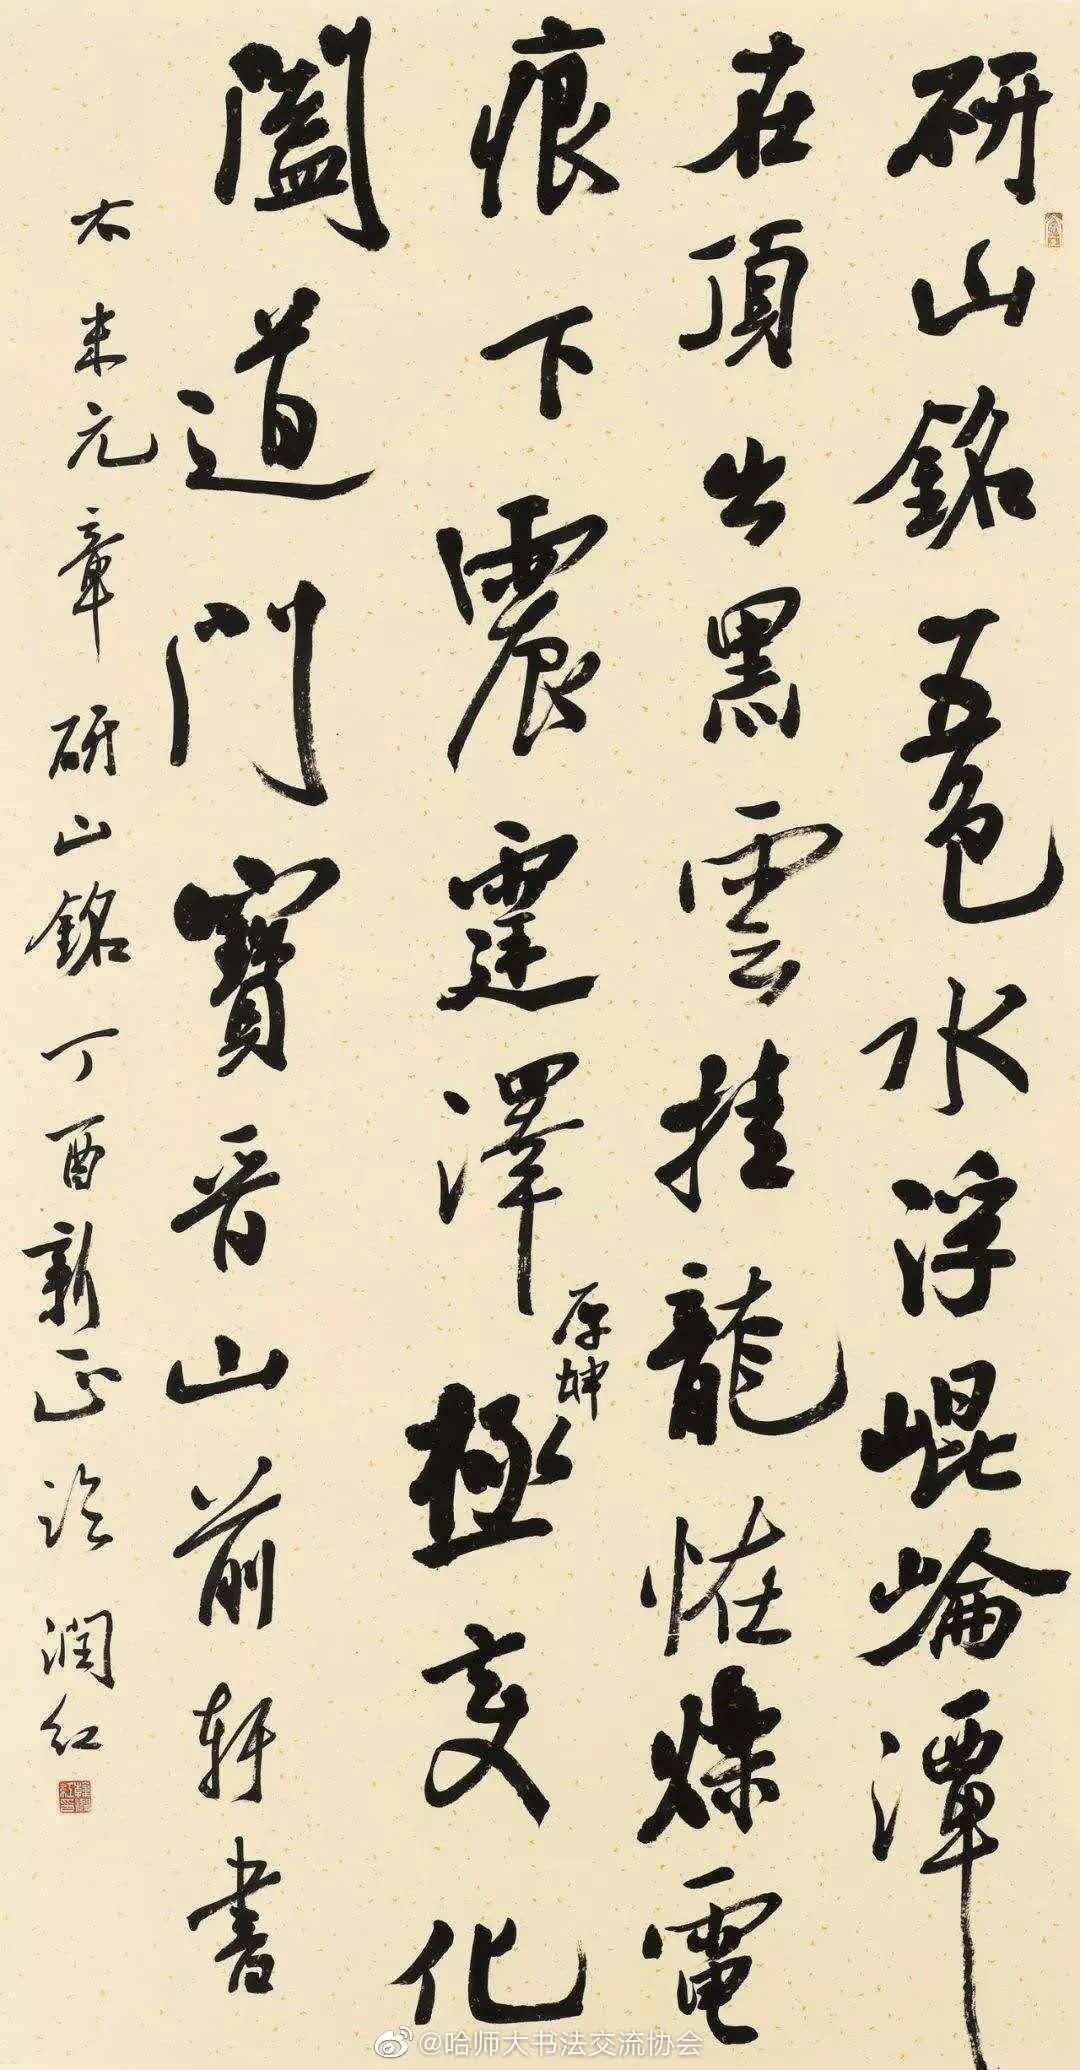 研山銘五色水浮崐崘潭
在頂出黑雲挂龍恠爍電
痕下震霆澤厚坤極变化
闔道門寶晋山前軒書
右米元章研山銘丁酉新正临潤紅
@哈师大书法交流协会